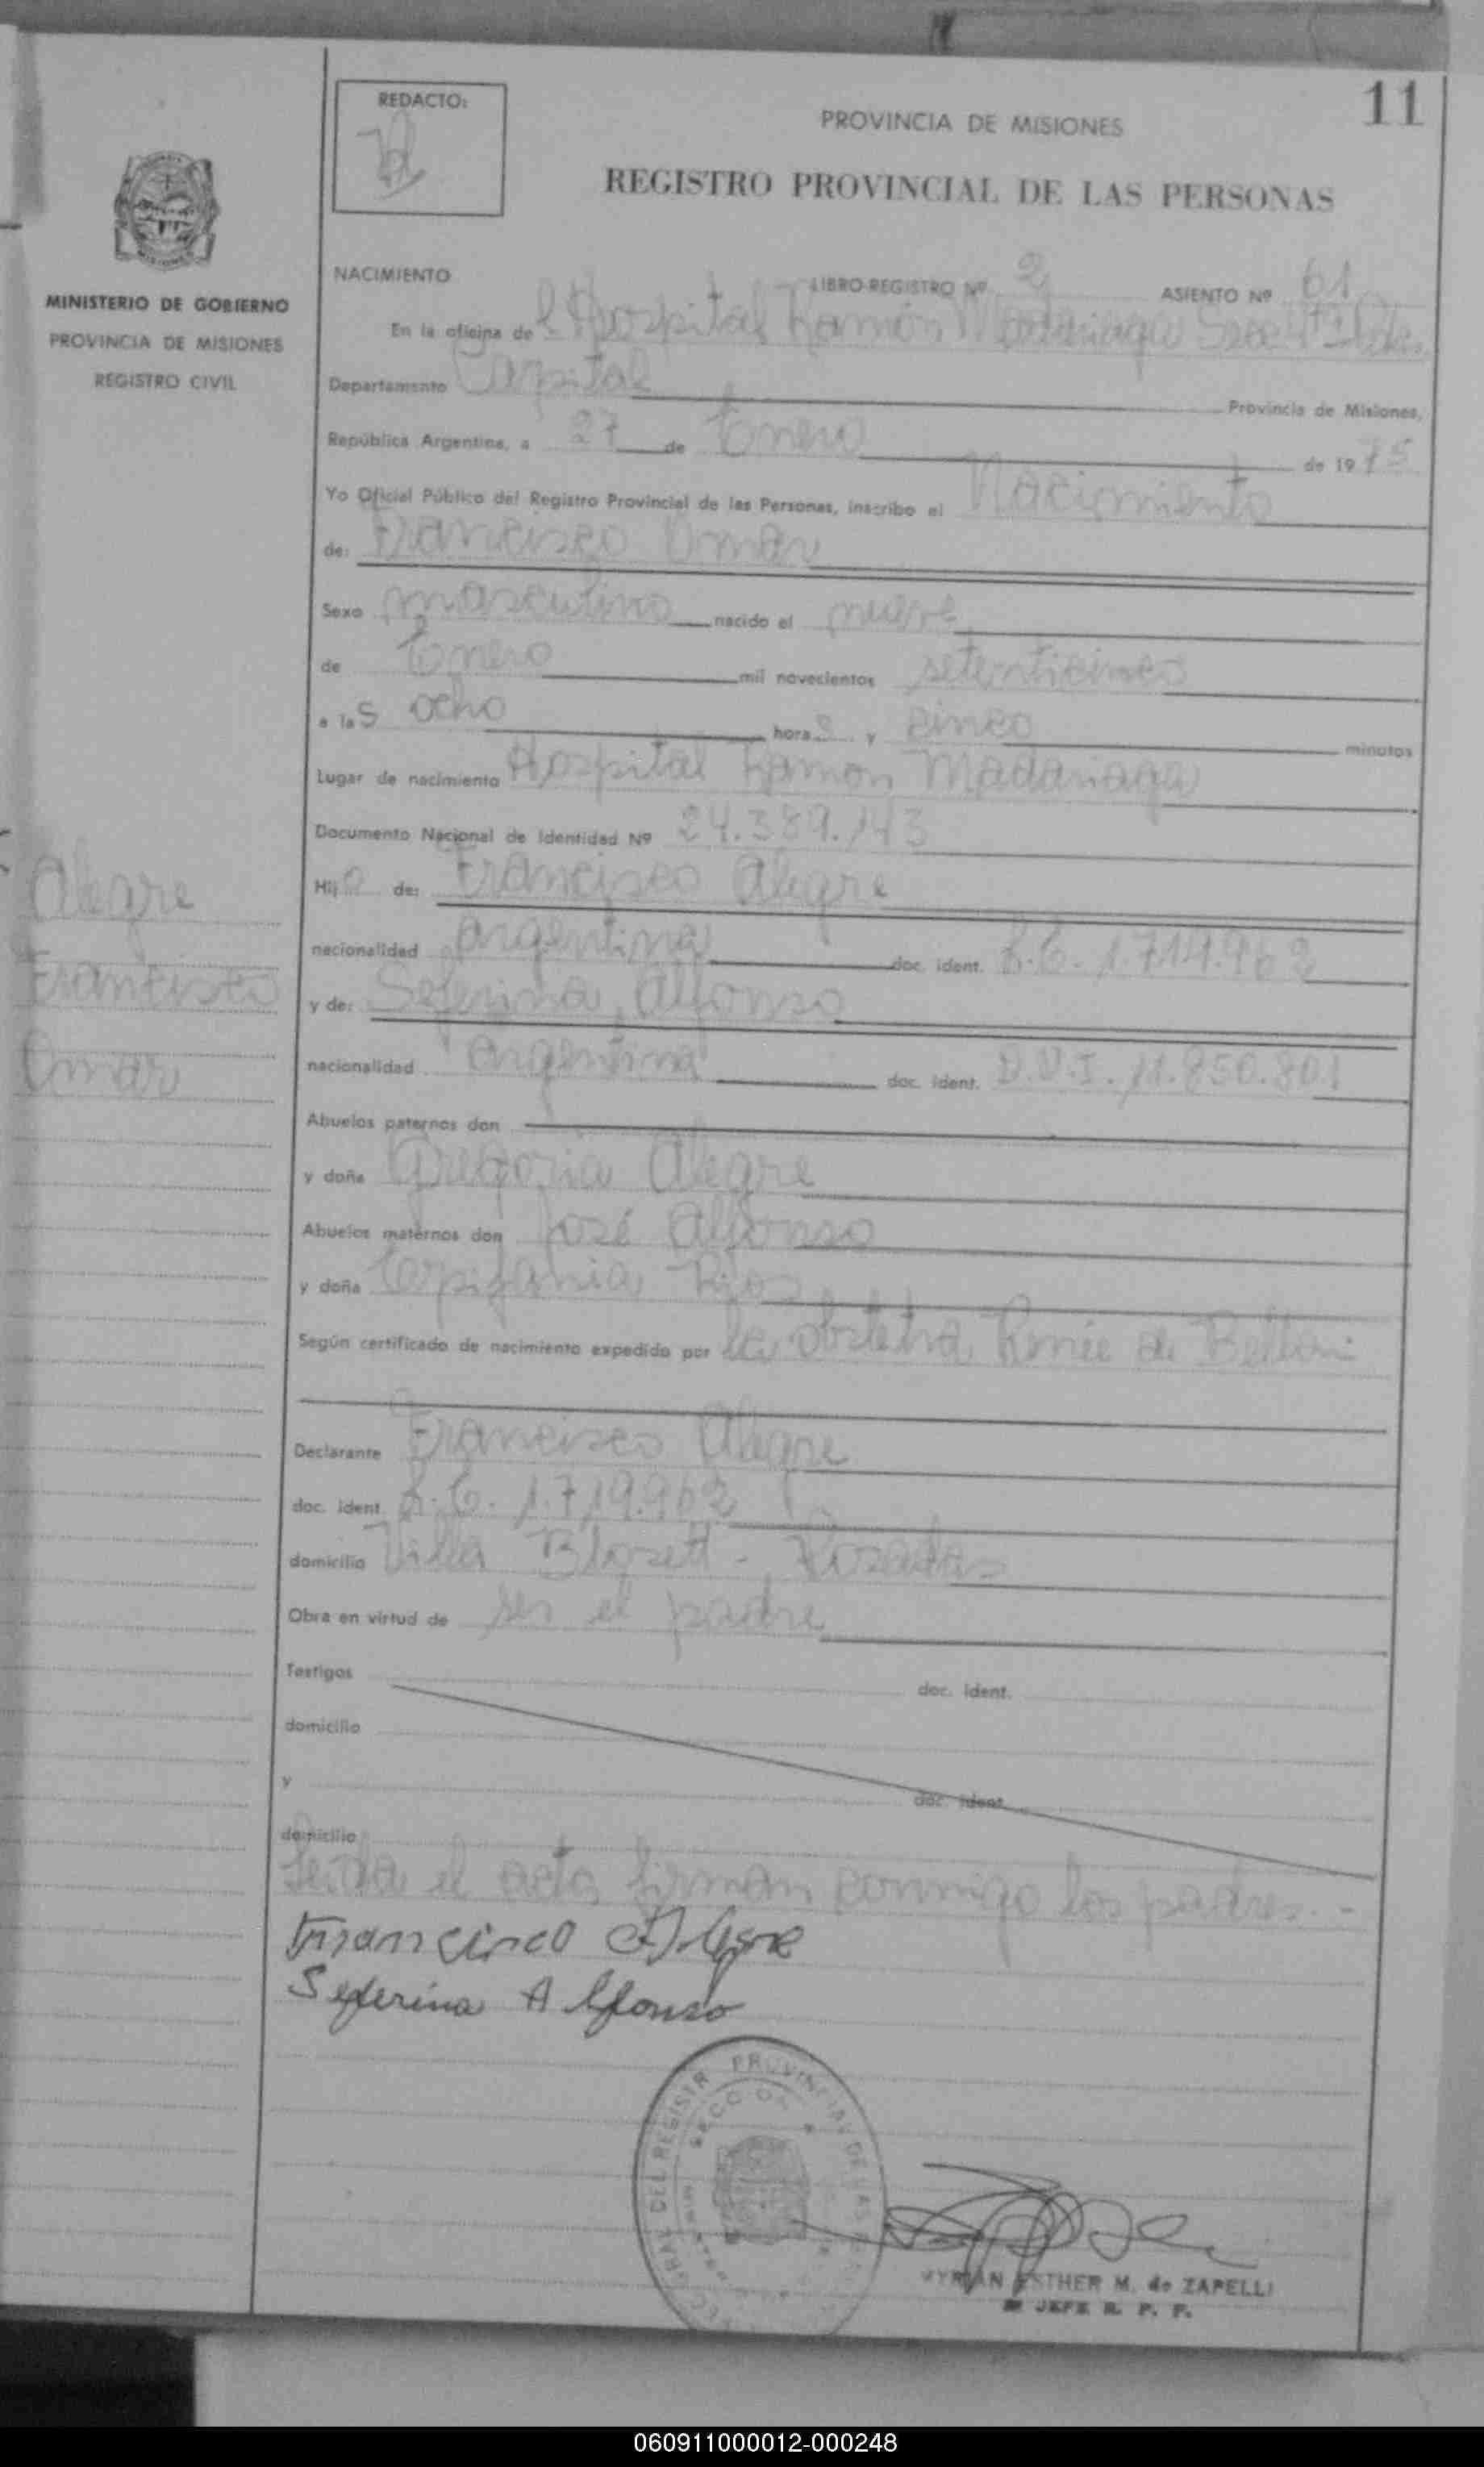 11
REDACTO:
PROVINCIA DE MISIONES
REGISTRO PROVINCIAL DE LAS PERSONAS
MINISTERIO DE GOBIERNO
PROVINCIA DE MISIONES
REGISTRO CIVIL
NACIMIENTO LIBRO-REGISTRO Nº 2 ASIENTO Nº 61
En la oficina del Hospital Ramón Madariaga Secc 4ta
Departamento Capital Provincia de Misiones,
República Argentina, a 27 de Enero de 1975
Yo Oficial Público del Registro Provincial de las Personas, inscribo el Nacimiento
de: Francisco Omar
Sexo masculino nacido el nueve
de Enero mil novecientos setenticinco
a las ocho horas y cinco minutos
Lugar de nacimiento Hospital Ramon Madariaga
Documento Nacional de Identidad Nº 24.389.143
Hijo de: Francisco Alegre
nacionalidad argentina doc. ident.
y de: Seferina Alfonso
nacionalidad argentina doc. ident. D.N.I. 11.850.801
Abuelos paternos don
y doña Gregoria Alegre
Abuelos maternos don José Alfonso
y doña Rios
Según certificado de nacimiento expedido por la obstetra Renée de
Declarante Francisco Alegre
doc. ident.
domicilio Villa Blosett - Posadas
Obra en virtud de ser el padre
Testigos doc. ident.
domicilio
y doc. ident.
domicilio
Leida el acta, firman conmigo los padres.-
Francisco Alegre
Seferina Alfonso
Alegre
Francisco
Omar
PROVINCIAL DE LAS
DEL REGISTR
MYRIAN ESTHER M. de ZAPELLI
JEFE R. P. P.
060911000012-000248